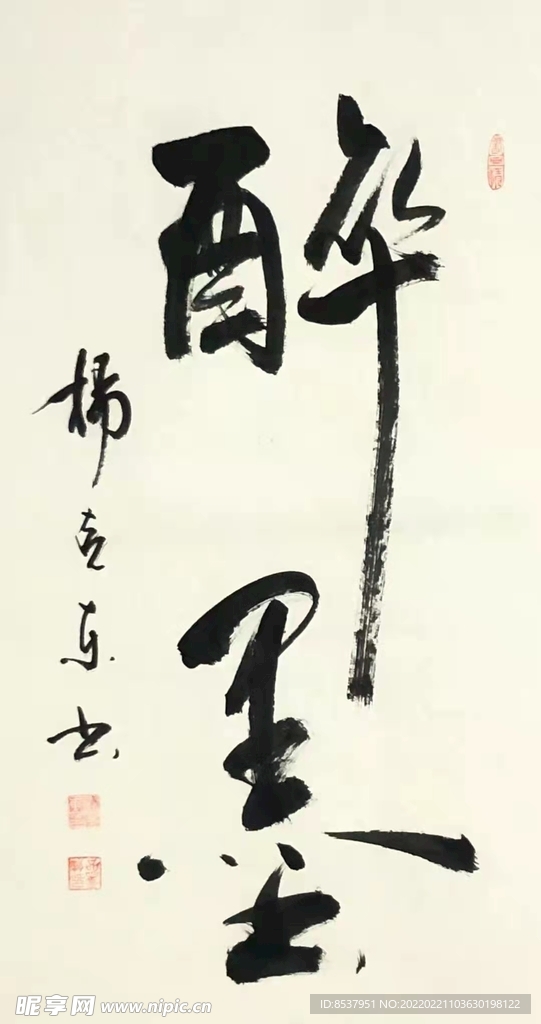 醉墨
楊 东书
昵享网 www.nipic.cn
ID:8537951 NO:20220221103630198122